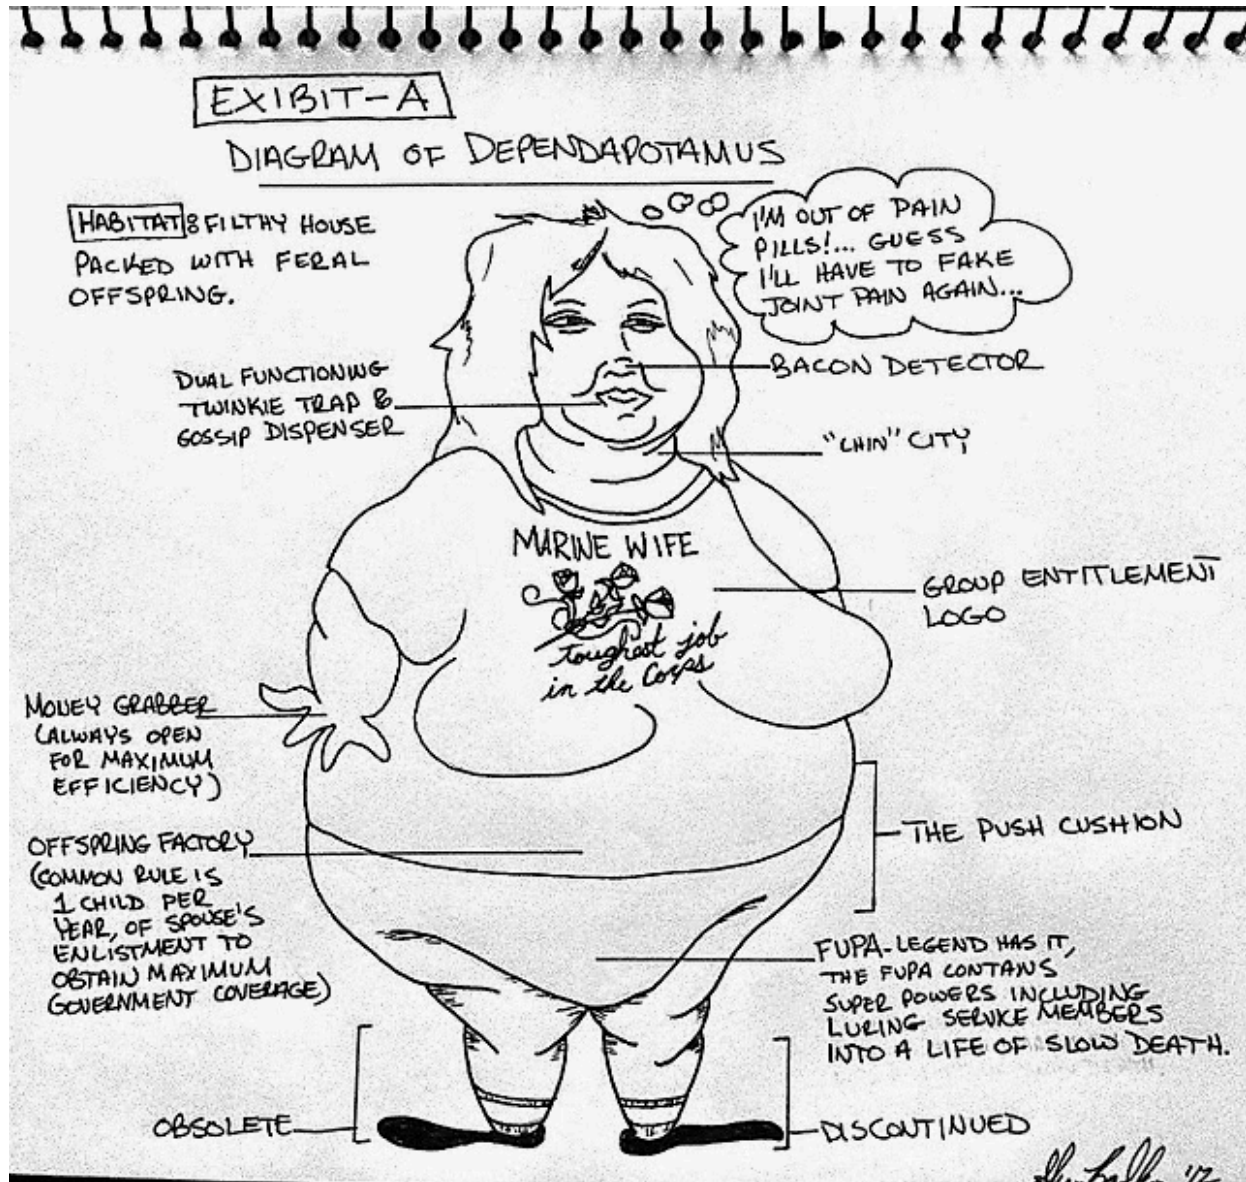 EXIBIT-A
DIAGRAM OF DEPENDAPOTAMUS
HABITAT: FILTHY HOUSE
PACKED WITH FERAL
OFFSPRING.
I'M OUT OF PAIN
PILLS!... GUESS
I'LL HAVE TO FAKE
JOINT PAIN AGAIN...
DUAL FUNCTIONING
TWINKIE TRAP &
GOSSIP DISPENSER
BACON DETECTOR
"CHIN" CITY
MARINE WIFE
Toughest job
in the Corps
GROUP ENTITLEMENT
LOGO
MONEY GRABBER
(ALWAYS OPEN
FOR MAXIMUM
EFFICIENCY)
THE PUSH CUSHION
OFFSPRING FACTORY
(COMMON RULE IS
1 CHILD PER
YEAR, OF SPOUSE'S
ENLISTMENT TO
OBTAIN MAXIMUM
GOVERNMENT COVERAGE)
FUPA-LEGEND HAS IT,
THE FUPA CONTAINS
SUPER POWERS INCLUDING
LURING SERVICE MEMBERS
INTO A LIFE OF SLOW DEATH.
OBSOLETE
DISCONTINUED
'12